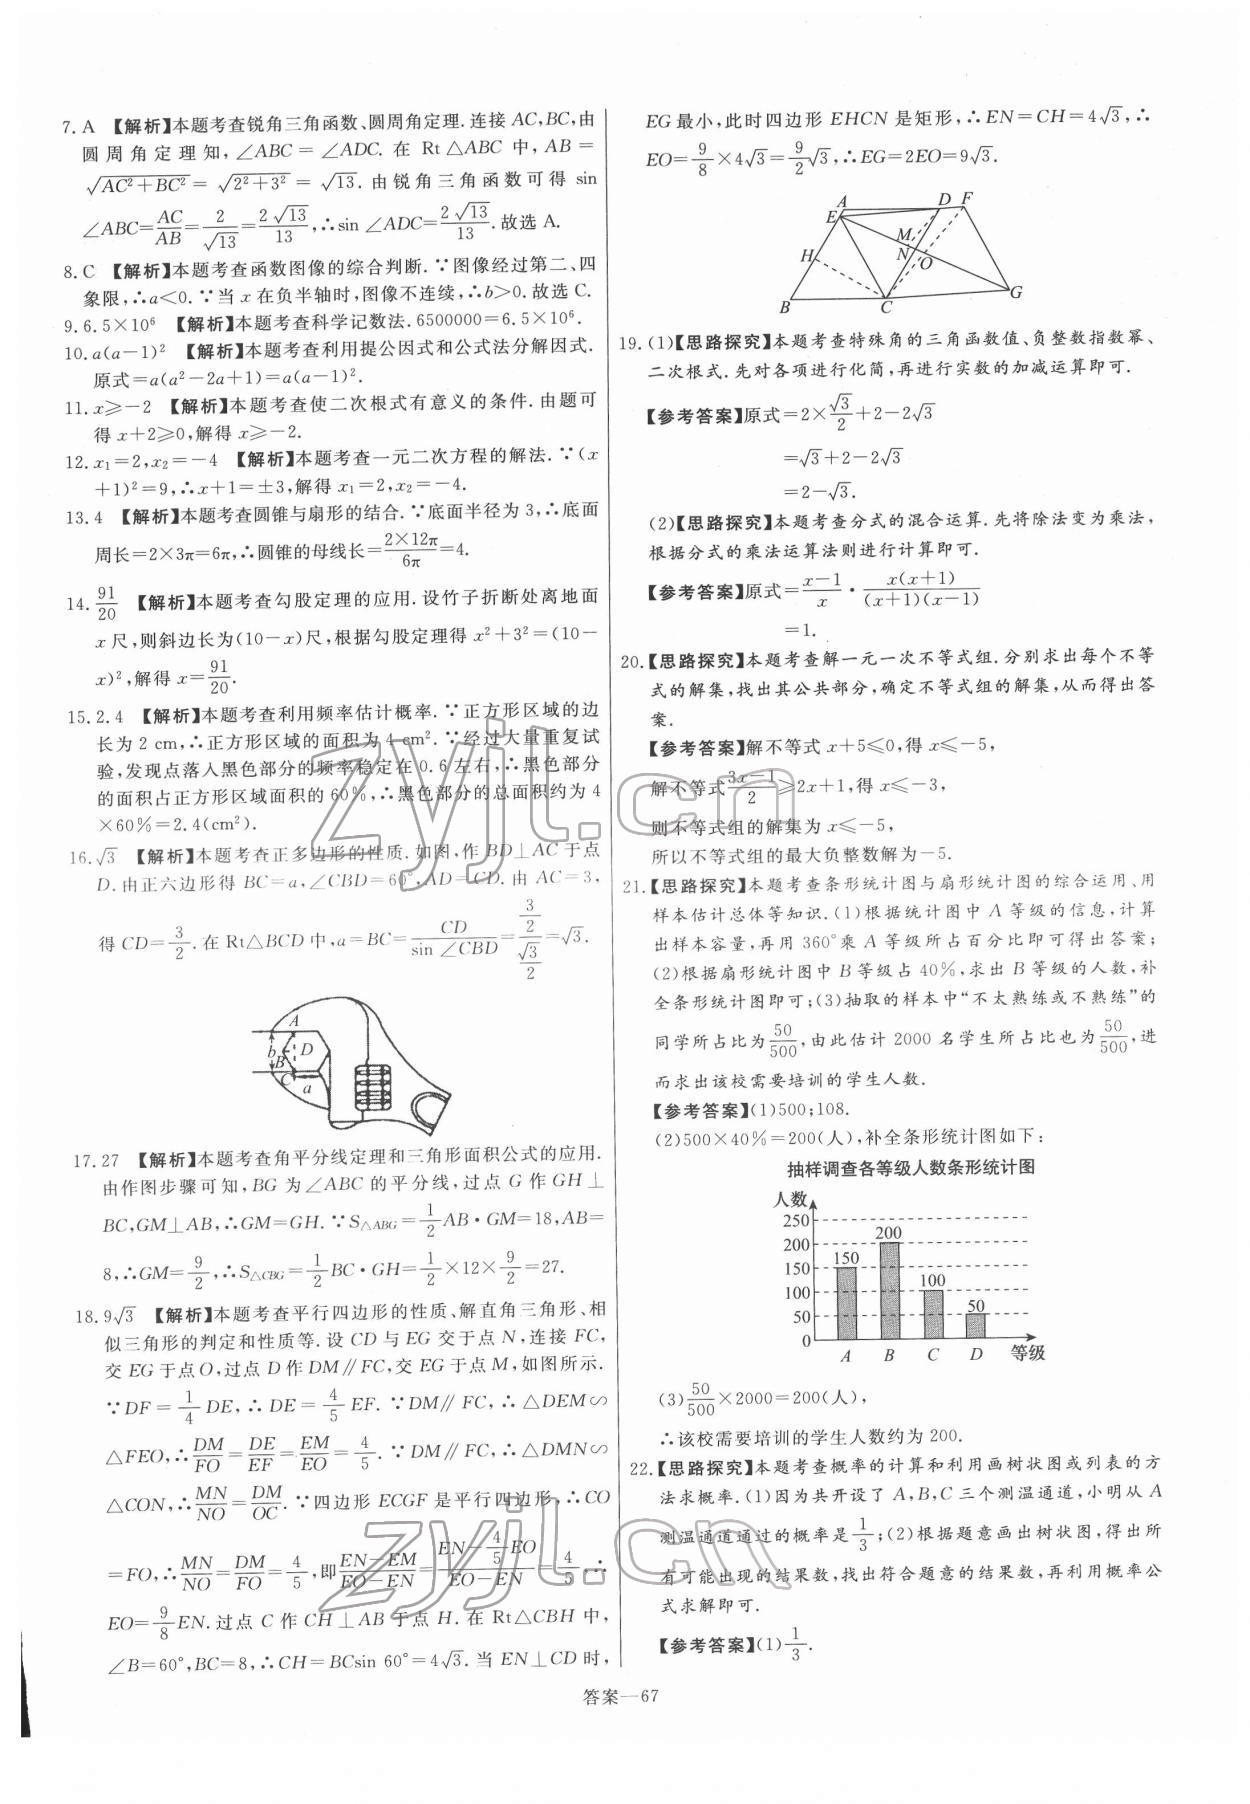 7. A 【解析】本题考查锐角三角函数、圆周角定理.连接 AC,BC,由
圆周角定理知,∠ABC=∠ADC. 在 Rt△ABC 中, AB=
√(AC²+BC²)=√(2²+3²)=√13. 由锐角三角函数可得 sin
∠ABC=AC/AB=2/√13=2√13/13,∴sin ∠ADC=2√13/13.故选 A.
8. C 【解析】本题考查函数图像的综合判断.∵图像经过第二、四
象限,∴a<0.∵当 x 在负半轴时,图像不连续,∴b>0.故选 C.
9. 6.5×10⁶ 【解析】本题考查科学记数法.6500000=6.5×10⁶.
10. a(a−1)² 【解析】本题考查利用提公因式和公式法分解因式.
原式=a(a²−2a+1)=a(a−1)².
11. x≥−2 【解析】本题考查使二次根式有意义的条件.由题可
得 x+2≥0,解得 x≥−2.
12. x₁=2,x₂=−4 【解析】本题考查一元二次方程的解法.∵(x
+1)²=9,∴x+1=±3,解得 x₁=2,x₂=−4.
13. 4 【解析】本题考查圆锥与扇形的结合.∵底面半径为 3,∴底面
周长=2×3π=6π,∴圆锥的母线长=2×12π/6π=4.
14. 91/20 【解析】本题考查勾股定理的应用.设竹子折断处离地面
x 尺,则斜边长为(10−x)尺,根据勾股定理得 x²+3²=(10−
x)²,解得 x=91/20.
15. 2.4 【解析】本题考查利用频率估计概率.∵正方形区域的边
长为 2 cm,∴正方形区域的面积为 4 cm².∵经过大量重复试
验,发现点落入黑色部分的频率稳定在 0.6 左右,∴黑色部分
的面积占正方形区域面积的 60%,∴黑色部分的总面积约为 4
×60%=2.4(cm²).
16. √3 【解析】本题考查正多边形的性质.如图,作 BD⊥AC 于点
D.由正六边形得 BC=a,∠CBD=60°,AD=CD.由 AC=3,
得 CD=3/2.在 Rt△BCD 中,a=BC=CD/sin ∠CBD=(3/2)/(√3/2)=√3.
A
b
D
B
C
a
17. 27 【解析】本题考查角平分线定理和三角形面积公式的应用.
由作图步骤可知,BG 为∠ABC 的平分线,过点 G 作 GH⊥
BC,GM⊥AB,∴GM=GH.∵S△ABG=1/2 AB·GM=18,AB=
8,∴GM=9/2,∴S△CBG=1/2 BC·GH=1/2×12×9/2=27.
18. 9√3 【解析】本题考查平行四边形的性质、解直角三角形、相
似三角形的判定和性质等.设 CD 与 EG 交于点 N,连接 FC,
交 EG 于点 O,过点 D 作 DM∥FC,交 EG 于点 M,如图所示.
∵DF=1/4 DE,∴DE=4/5 EF.∵DM∥FC,∴△DEM∽
△FEO,∴DM/FO=DE/EF=EM/EO=4/5.∵DM∥FC,∴△DMN∽
△CON,∴MN/NO=DM/OC.∵四边形 ECGF 是平行四边形,∴CO
=FO,∴MN/NO=DM/FO=4/5,即(EN−EM)/(EO−EN)=(EN−4/5 EO)/(EO−EN)=4/5,∴
EO=9/8 EN.过点 C 作 CH⊥AB 于点 H.在 Rt△CBH 中,
∠B=60°,BC=8,∴CH=BCsin 60°=4√3.当 EN⊥CD 时,
EG 最小,此时四边形 EHCN 是矩形,∴EN=CH=4√3,∴
EO=9/8×4√3=9/2√3,∴EG=2EO=9√3.
A
D
F
E
M
H
N
O
G
B
C
19. (1)【思路探究】本题考查特殊角的三角函数值、负整数指数幂、
二次根式.先对各项进行化简,再进行实数的加减运算即可.
【参考答案】原式=2×√3/2+2−2√3
=√3+2−2√3
=2−√3.
(2)【思路探究】本题考查分式的混合运算.先将除法变为乘法,
根据分式的乘法运算法则进行计算即可.
【参考答案】原式=(x−1)/x·x(x+1)/((x+1)(x−1))
=1.
20. 【思路探究】本题考查解一元一次不等式组.分别求出每个不等
式的解集,找出其公共部分,确定不等式组的解集,从而得出答
案.
【参考答案】解不等式 x+5≤0,得 x≤−5,
解不等式(3x−1)/2≥2x+1,得 x≤−3,
则不等式组的解集为 x≤−5,
所以不等式组的最大负整数解为−5.
21. 【思路探究】本题考查条形统计图与扇形统计图的综合运用、用
样本估计总体等知识.(1)根据统计图中 A 等级的信息,计算
出样本容量,再用 360°乘 A 等级所占百分比即可得出答案;
(2)根据扇形统计图中 B 等级占 40%,求出 B 等级的人数,补
全条形统计图即可;(3)抽取的样本中“不太熟练或不熟练”的
同学所占比为50/500,由此估计 2000 名学生所占比也为50/500,进
而求出该校需要培训的学生人数.
【参考答案】(1)500;108.
(2)500×40%=200(人),补全条形统计图如下:
抽样调查各等级人数条形统计图
人数
250
200
150
100
50
0
150
200
100
50
A B C D 等级
(3)50/500×2000=200(人),
∴该校需要培训的学生人数约为 200.
22. 【思路探究】本题考查概率的计算和利用画树状图或列表的方
法求概率.(1)因为共开设了 A,B,C 三个测温通道,小明从 A
测温通道通过的概率是1/3;(2)根据题意画出树状图,得出所
有可能出现的结果数,找出符合题意的结果数,再利用概率公
式求解即可.
【参考答案】(1)1/3.
答案—67
zyjl.cn
zyjl.cn